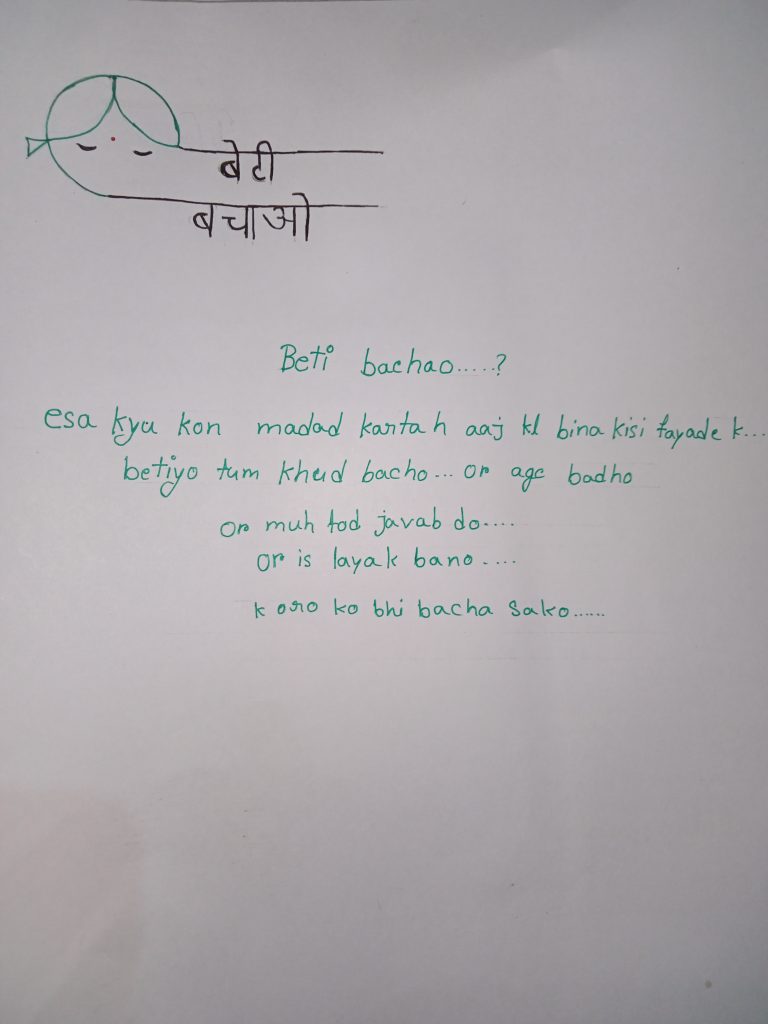 बेटी
बचाओ
Beti bachao.....?
esa kyu kon madad karta h aaj kl bina kisi fayade k...
betiyo tum khud bacho... or age badho
or muh tod javab do....
or is layak bano....
k oro ko bhi bacha sako......